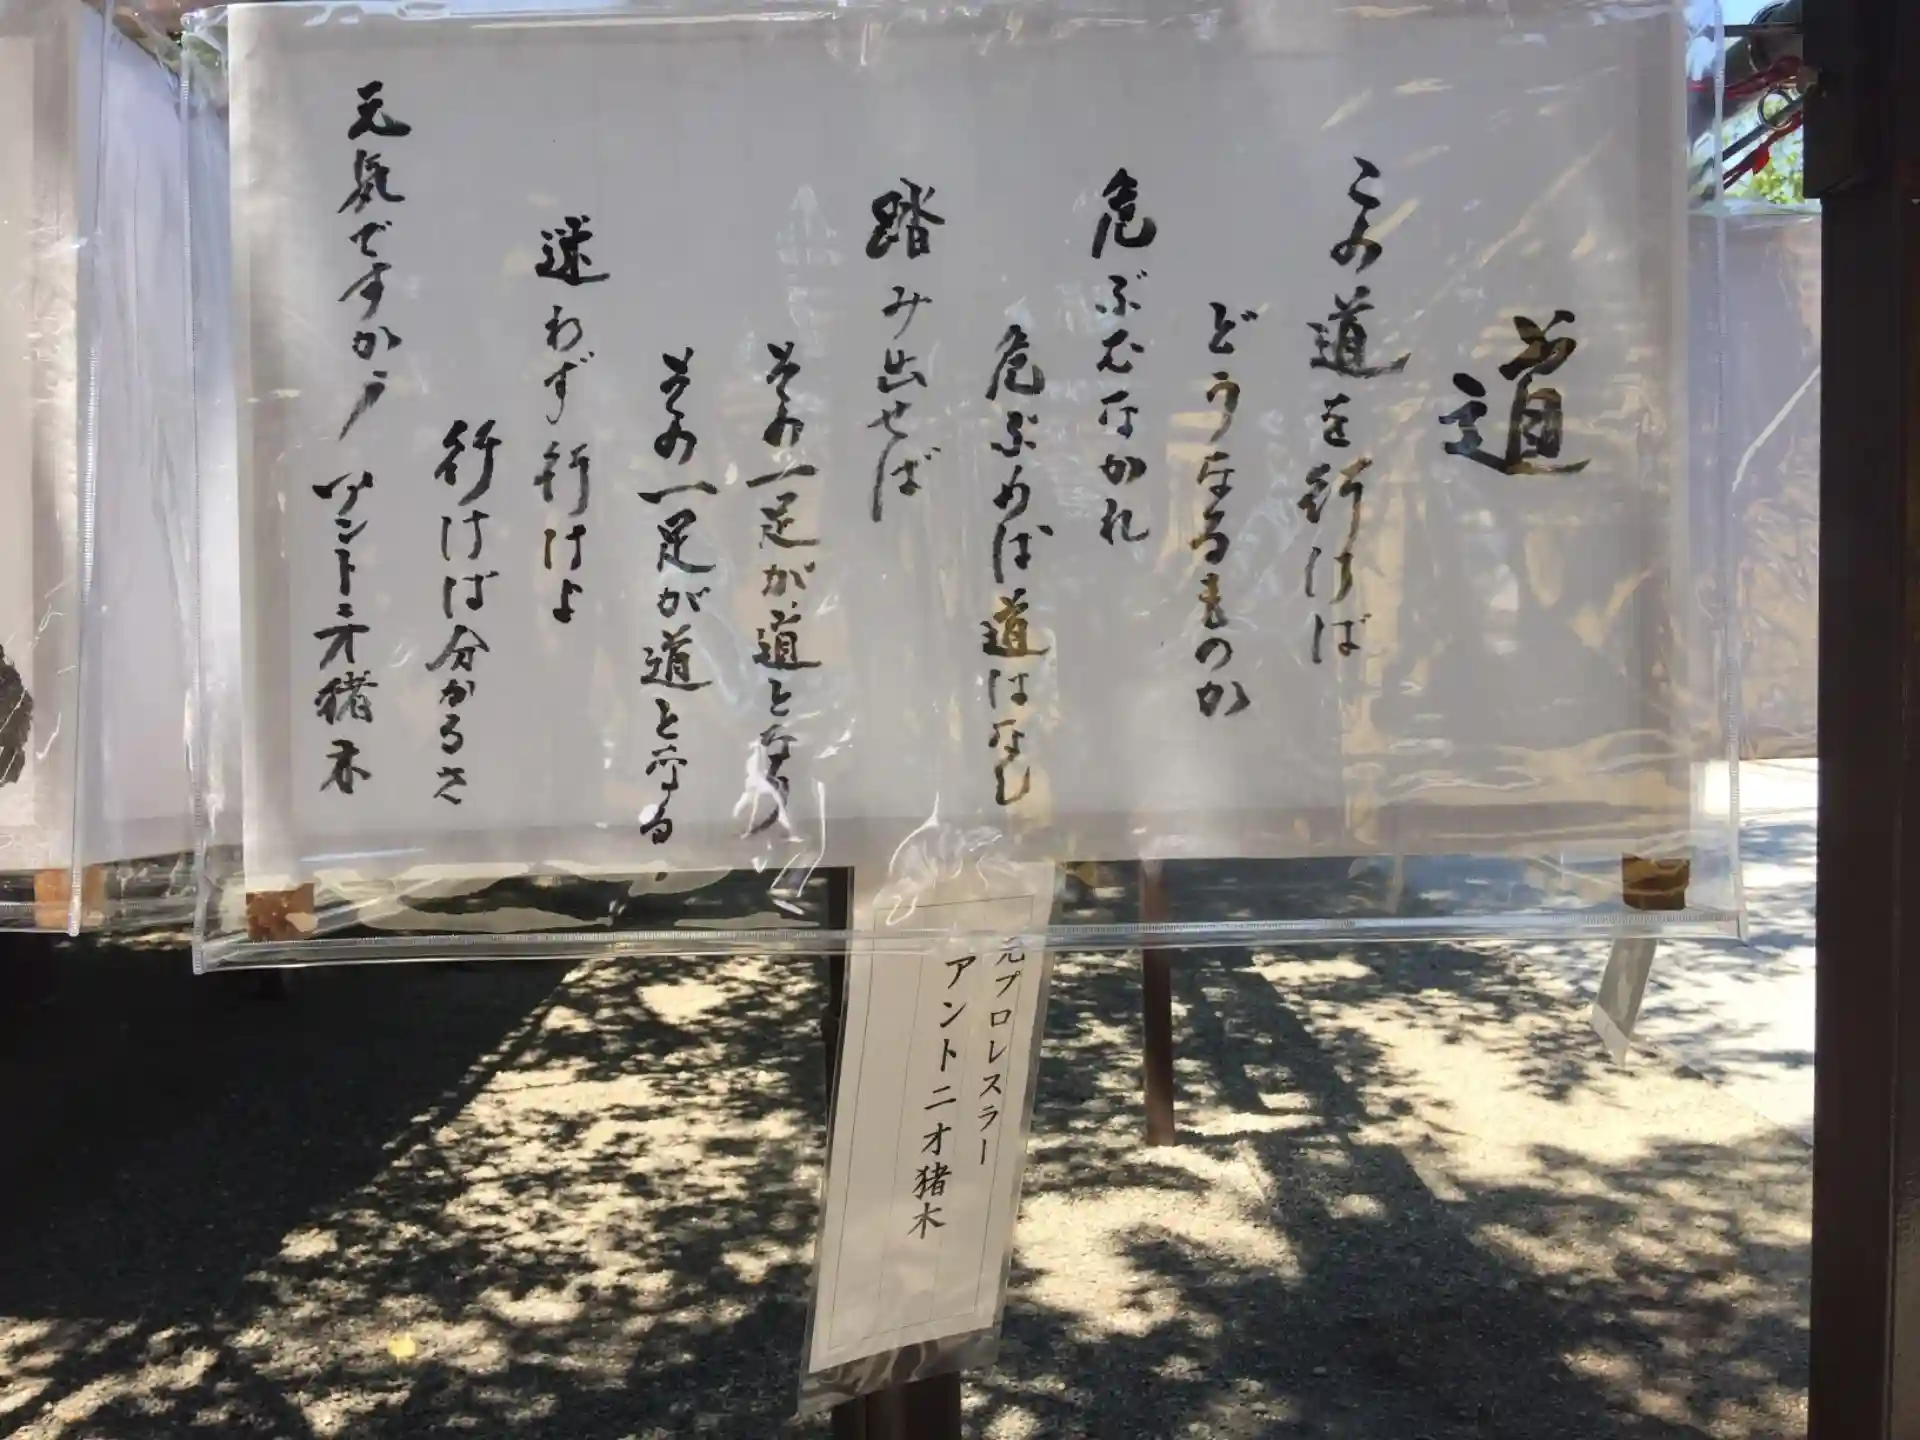 道
この道を行けば
どうなるものか
危ぶむなかれ
危ぶめば道はなし
踏み出せば
その一足が道となり
その一足が道となる
迷わず行けよ
行けば分かるさ
元気ですかッ
アントニオ猪木
元プロレスラー
アントニオ猪木